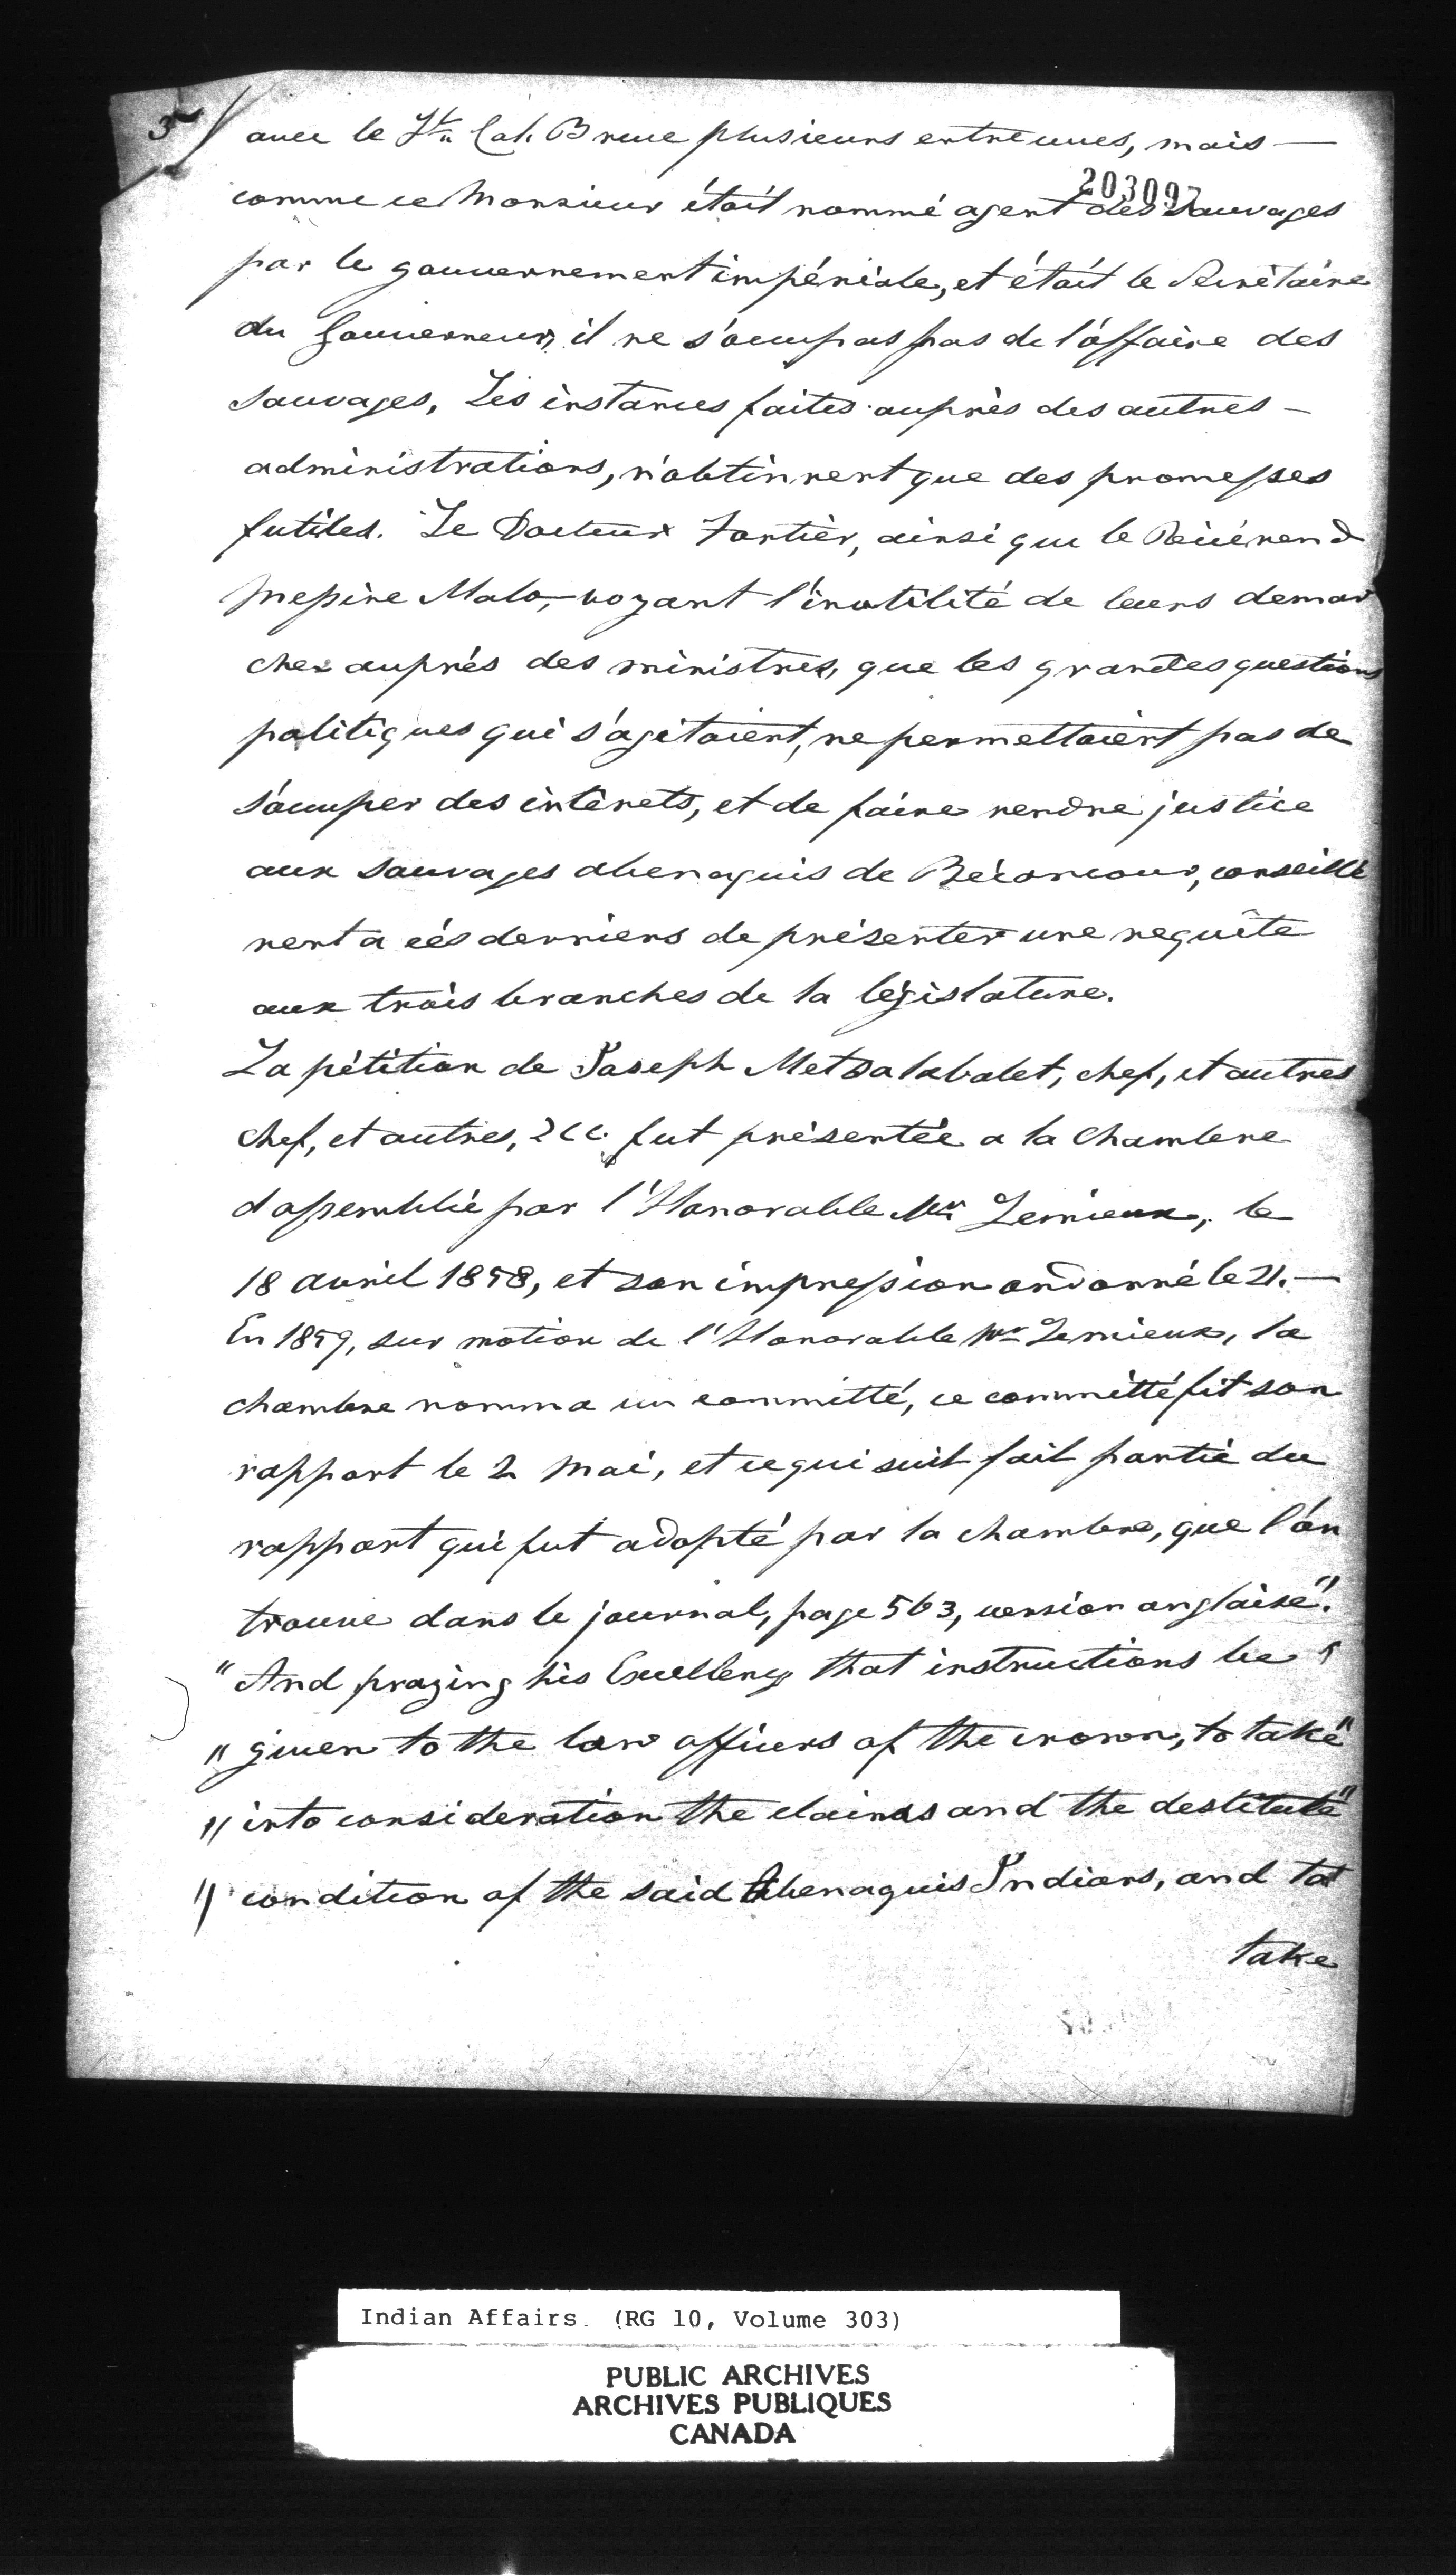 3
avec le Ltn Col. Brue plusieurs entrevues, mais —
203097
comme ce Monsieur était nommé agent des sauvages
par le gouvernement impériale, et était le Secrétaire
du Gouverneur, il ne s'ocupas pas de l'affaire des
sauvages, Les instances faites auprès des autres —
administrations, n'obtinrent que des promesses
futiles. Le Docteur Fortier, ainsi que le Révérend
Messire Malo, voyant l'inutilité de leurs demar
ches auprés des ministres, que les grandes questions
politiques qui s'agitaient, ne permettaient pas de
s'ocuper des intérets, et de faire rendre justice
aux sauvages abenaquis de Bécancour, conseillè
rent a cés derniers de présenter une requête
aux trois branches de la législature.
La pétition de Joseph Metzalabalet, chef, et autres
chef, et autres, &cc. fut présentée a la Chambre
dassemblée par l'Honorable Mr Lemieux, le
18 avril 1858, et son impression ordonné le 21. —
En 1859, sur motion de l'Honorable Mr Lemieux, la
chambre nomma un committé, ce committé fit son
rapport le 2 Mai, et ce qui suit fait partie du
rapport qui fut adopté par la chambre, que l'on
trouve dans le journal, page 563, version anglaise".
"And praying his Excellency that instructions be "
" given to the law officers of the crown, to take "
" into consideration the claims and the destitute "
" condition of the said Abenaquis Indians, and to
take
Indian Affairs. (RG 10, Volume 303)
PUBLIC ARCHIVES
ARCHIVES PUBLIQUES
CANADA